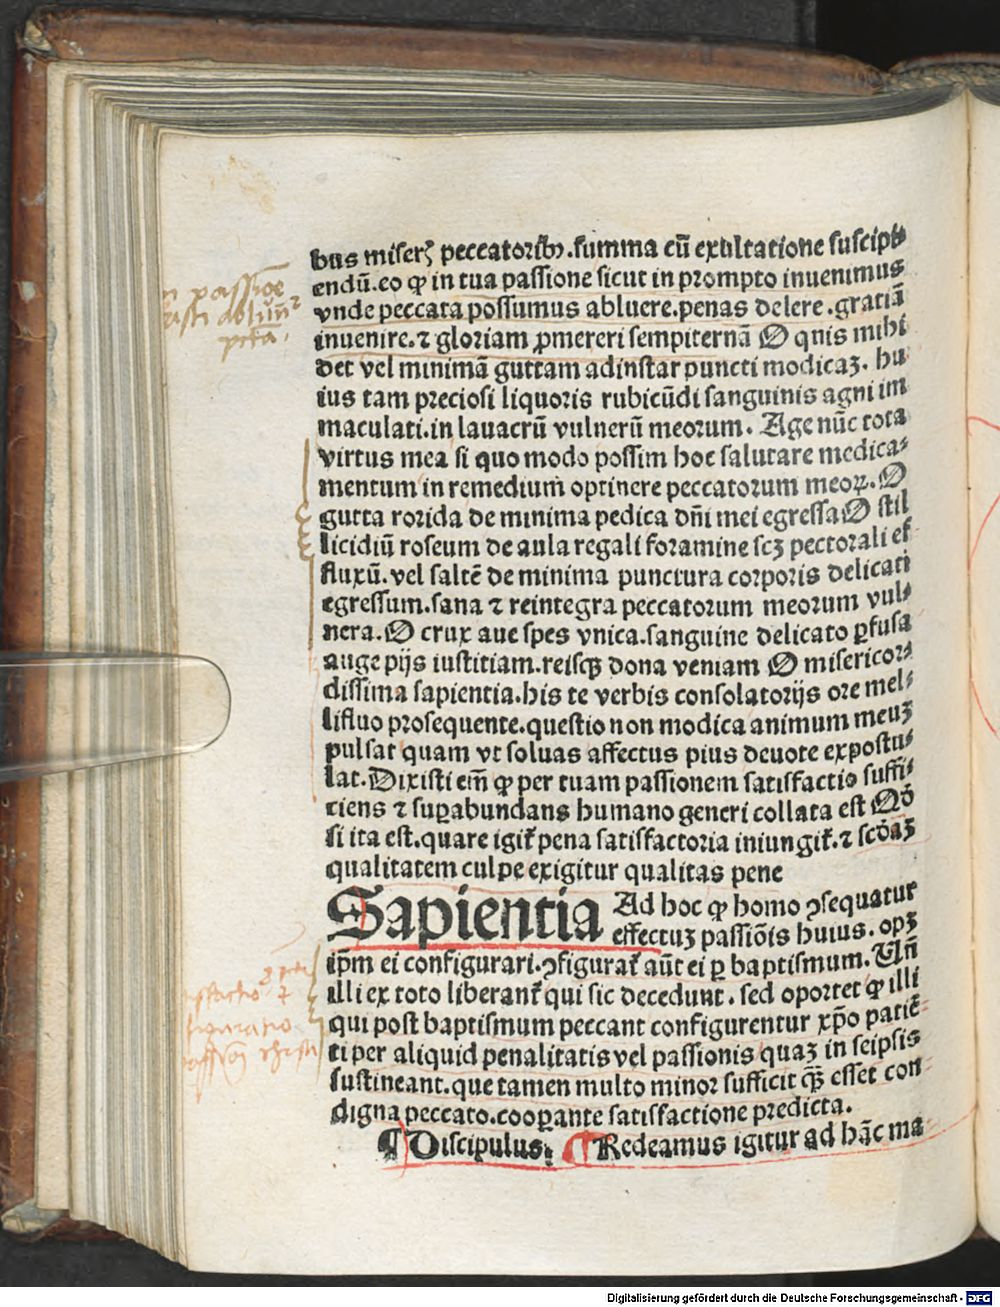 bus miserꝭ peccatoribꝰ.summa cū exultatione suscipi
endū.eo ꝙ in tua passione sicut in prompto inuenimus
vnde peccata possumus abluere.penas delere.gratiā
inuenire.⁊ gloriam ꝓmereri sempiternā O quis mihi
det vel minimā guttam adinstar puncti modicaꝫ. hu
ius tam preciosi liquoris rubicūdi sanguinis agni im
maculati.in lauacrū vulnerū meorum. Age nūc tota
virtus mea si quo modo possim hoc salutare medica⸗
mentum in remedium optinere peccatorum meoꝝ. O
gutta rorida de minima pedica dñi mei egressa O stil
licidiū roseum de aula regali foramine scꝫ pectorali ef
fluxū.vel saltē de minima punctura corporis delicati
egressum.sana ⁊ reintegra peccatorum meorum vul⸗
nera.O crux aue spes vnica.sanguine delicato ꝑfusa
auge pijs iustitiam.reisqꝫ dona veniam O misericor⸗
dissima sapientia.his te verbis consolatorijs ore mel⸗
lifluo prosequente.questio non modica animum meuꝫ
pulsat quam vt soluas affectus pius deuote expostu⸗
lat.Dixisti em̄ ꝙ per tuam passionem satisfactio suffi⸗
ciens ⁊ suꝑabundans humano generi collata est Qđ
si ita est.quare igit᷑ pena satisfactoria iniungit᷑.⁊ scđaꝫ
qualitatem culpe exigitur qualitas pene
Sapientia Ad hoc ꝙ homo ꝯsequatur
effectuꝫ passiōis huius. opꝫ
ip̄m ei configurari.ꝯfigurat᷑ aūt ei ꝑ baptismum. Vñ
illi ex toto liberant᷑ qui sic decedunt. sed oportet ꝙ illi
qui post baptismum peccant configurentur xp̄o patiē⸗
ti per aliquid penalitatis vel passionis quaꝫ in seipsis
sustineant.que tamen multo minor sufficit qꝫ̄ esset con⸗
digna peccato.cooꝑante satisfactione predicta.
¶ Discipulus. ¶ Redeamus igitur ad hāc ma⸗